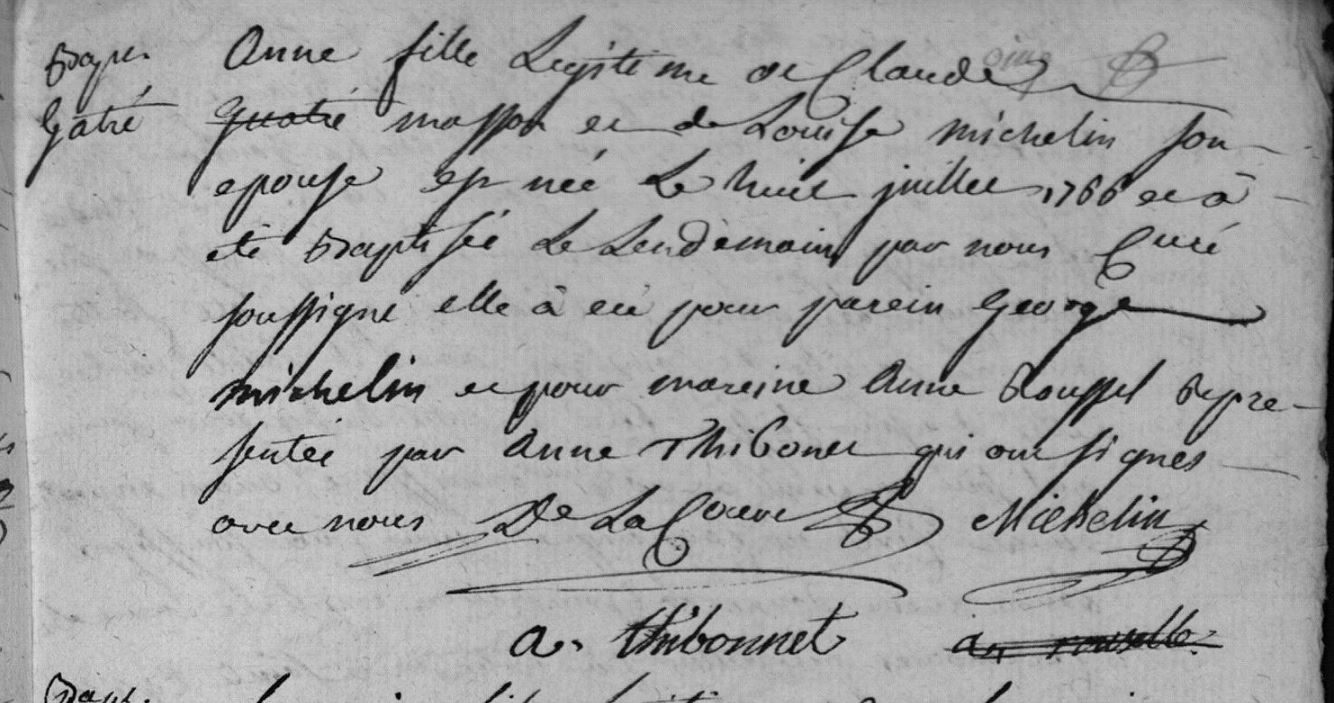 Bapt.
Gatié
Anne fille Legitime de Claude
Gatié masson et de Louise michelin son
epouse est née Le huit juillet 1766 et à
eté Baptisée Le Lendemain par nous Curé
soussigné elle à eü pour parein George
michelin et pour mareine Anne Roussel Repre-
sentée par Anne Thibonet qui ont signes
avec nous De La Cour Michelin
a. thibonnet
Bapt.